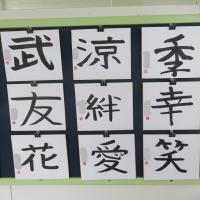 武 涼 季
友 絆 幸
花 愛 笑